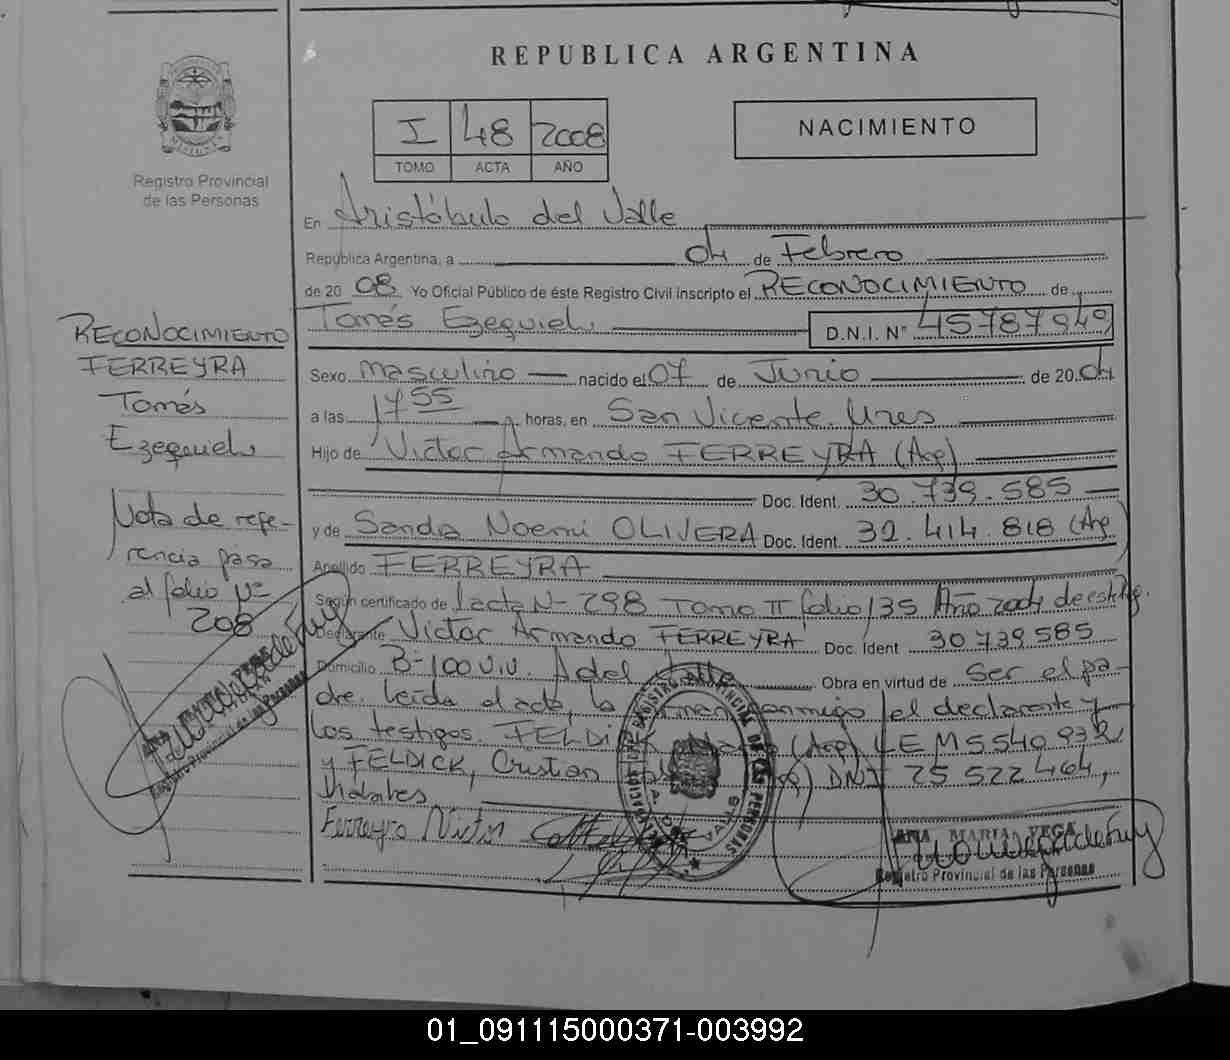 REPUBLICA ARGENTINA
I 48 2008
TOMO ACTA AÑO
NACIMIENTO
Registro Provincial
de las Personas
En Aristóbulo del Valle
República Argentina, a 04 de Febrero
de 20 08 Yo Oficial Público de éste Registro Civil inscripto el RECONOCIMIENTO de
Tomás Ezequiel D.N.I. Nº 45787949
Sexo masculino nacido el 07 de Junio de 20 04
a las 17 55 horas, en San Vicente, Mnes
Hijo de Victor Armando FERREYRA (Arg)
Doc. Ident. 30.739.585
y de Sandra Noemi OLIVERA Doc. Ident. 32.414.818 (Arg
Apellido FERREYRA
Según certificado de Nº 298 Tomo II folio 135 Año 2004
Declarante Victor Armando FERREYRA Doc. Ident 30739585
Domicilio B-100 Viv. A del Valle Obra en virtud de Ser el pa-
dre. Leída el acta, la firman conmigo el declarante y
los testigos. (Arg) LEM5540932
y FELDICK, Cristian DNI 25522464,
Ferreyra Victor
RECONOCIMIENTO
FERREYRA
Tomás
Ezequiel
Nota de refe-
rencia pasa
al folio Nº
208
ANA MARIA VEGA
Registro Provincial de las Personas
01_091115000371-003992